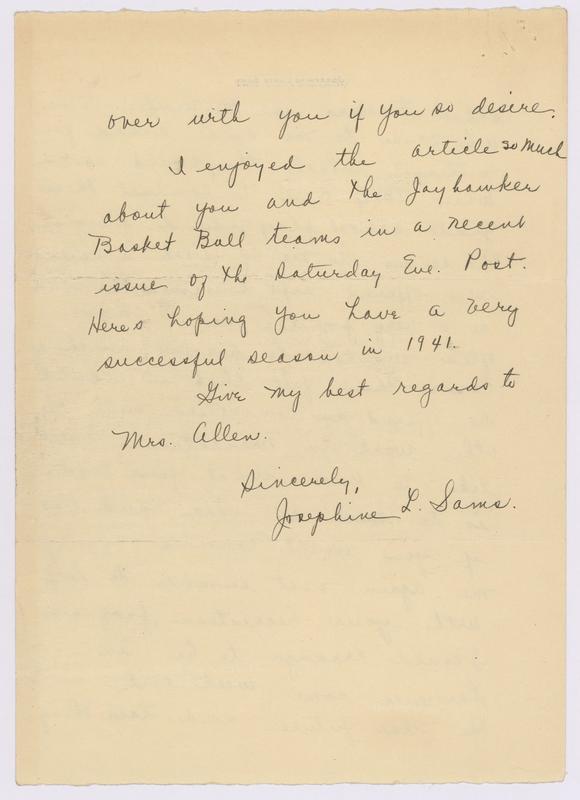 over with you if you so desire.
I enjoyed the article so much
about you and the Jayhawker
Basket Ball teams in a recent
issue of the Saturday Eve. Post.
Here's hoping you have a very
successful season in 1941.
Give my best regards to
Mrs. Allen.
Sincerely,
Josephine L. Sams.